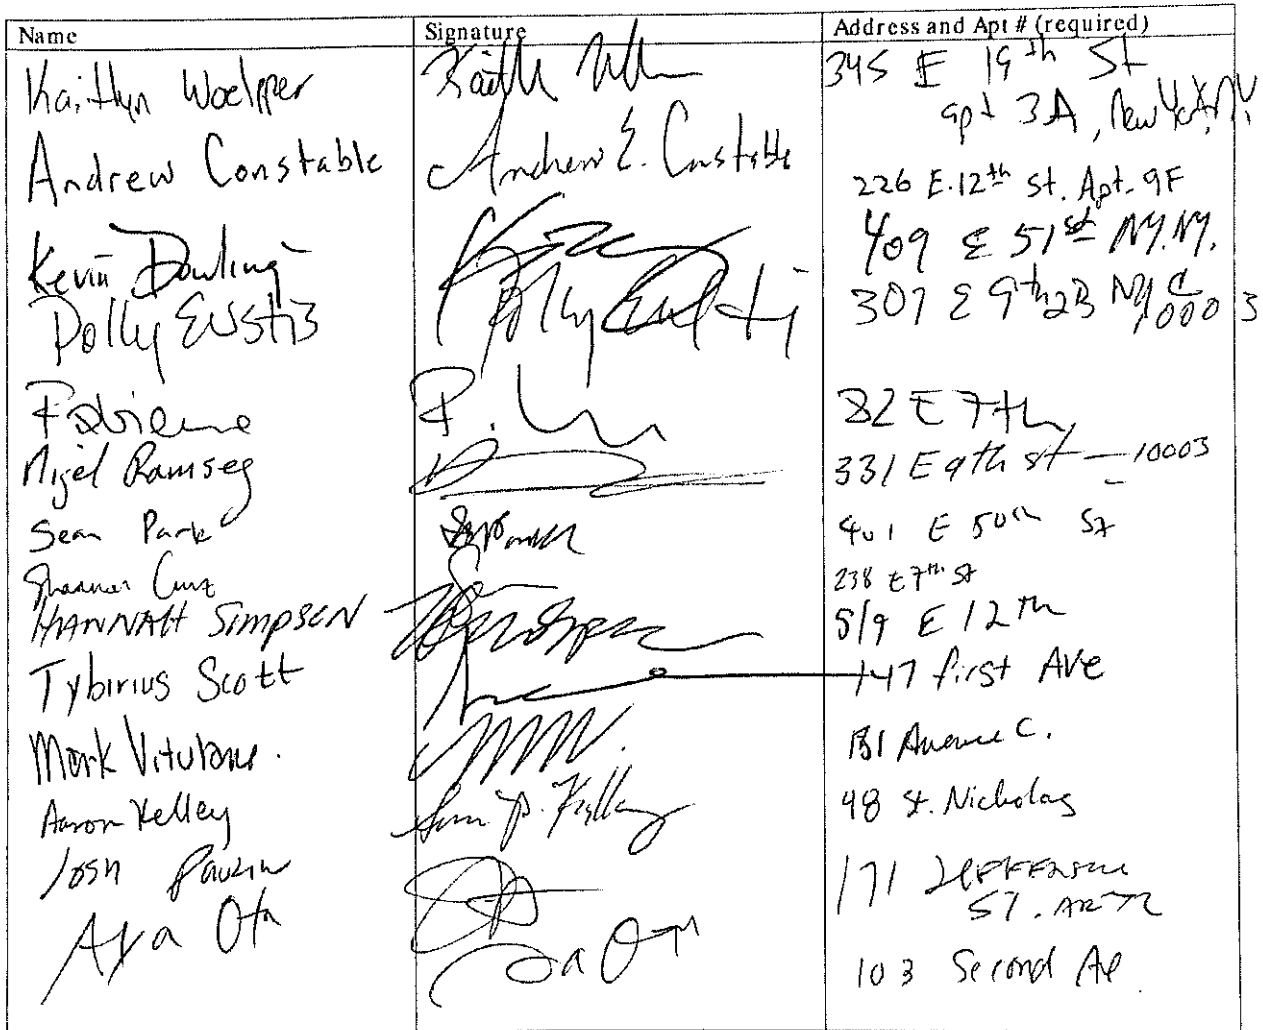 Name Signature Address and Apt # (required)
Kaitlyn Woelpper 345 E 19th St
apt 3A, New York, NY
Andrew Constable Andrew E. Constable 226 E. 12th St. Apt. 9F
Kevin Dowling 409 E 51st NY. NY.
Polly Eustis Polly Eustis 307 E 9th 2B NYC
10003
Fabienne 82 E 7th
Nigel Ramsey 331 E 9th st — 10003
Sean Park 401 E 50th St
238 E 7th St
HANNAH SIMPSEN 519 E 12th
Tybirius Scott 147 first Ave
Mark Avenue C.
Aaron Kelley 48 St. Nicholas
Josh 171 Jefferson
ST.
Aya Ota Aya Ota 103 Second Ave